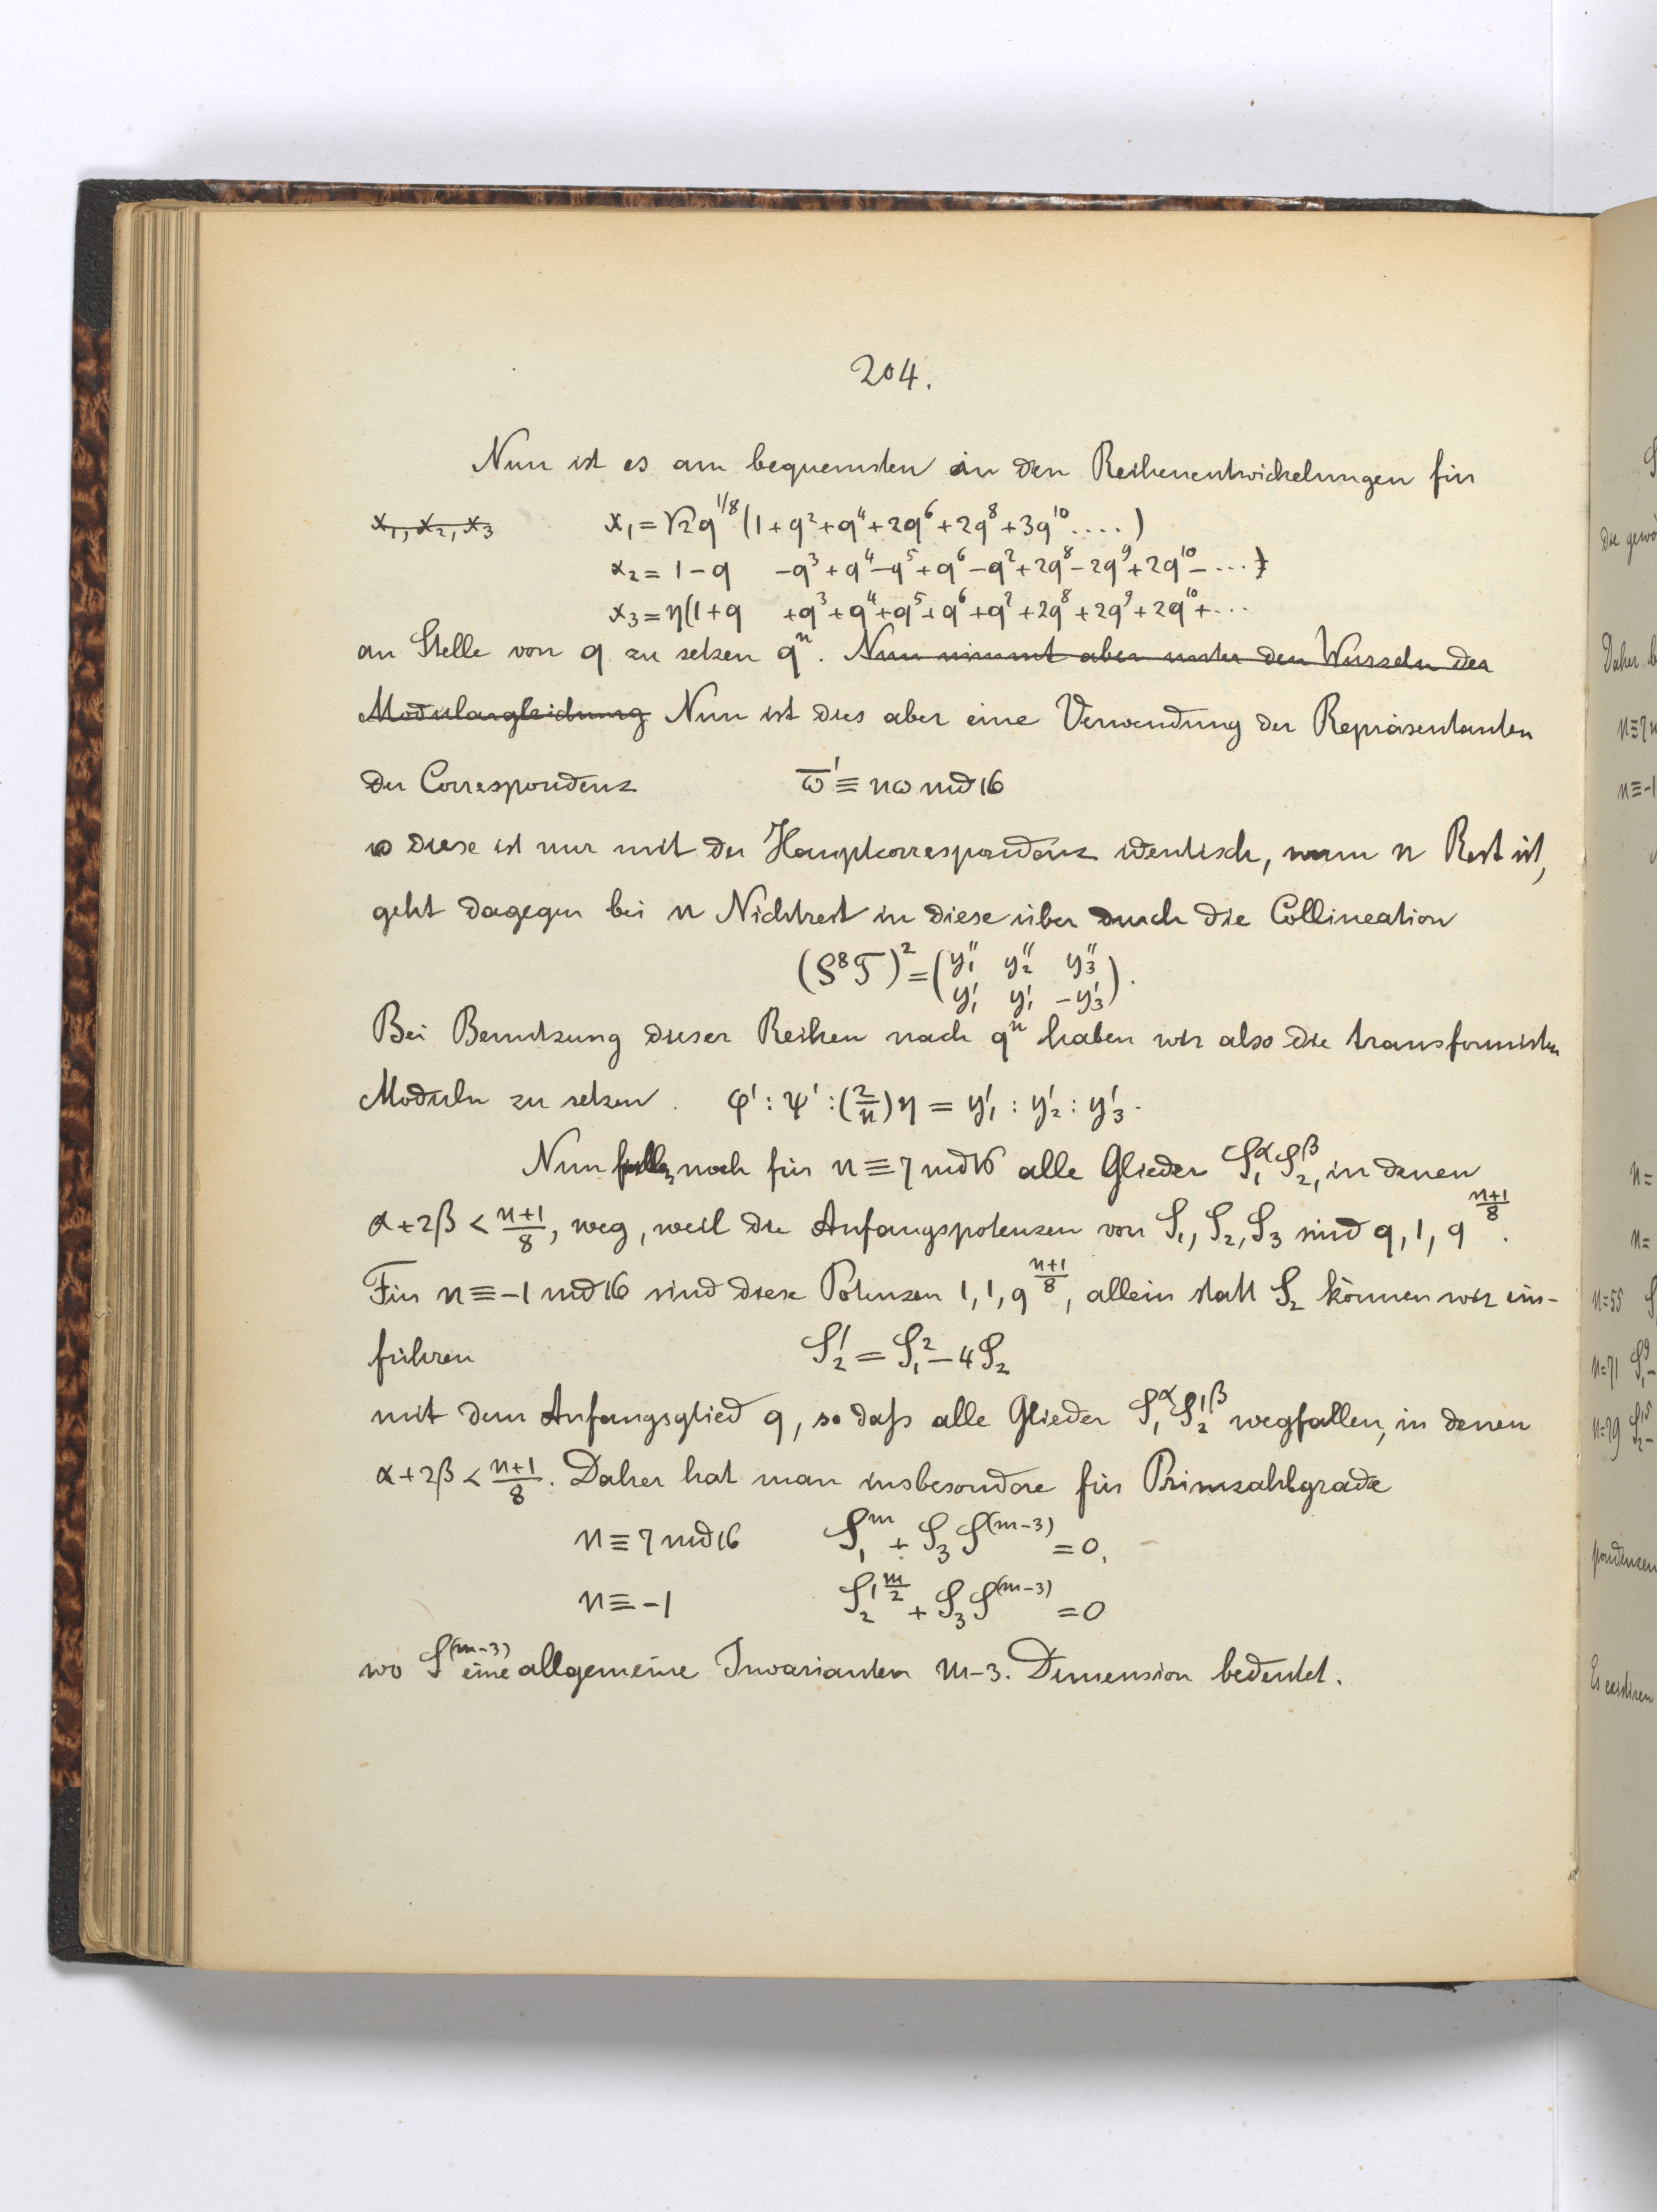 204.
Nun ist es am bequemsten in den Reihenentwickelungen für
x₁, x₂, x₃ x₁ = √2 q^{1/8} (1 + q² + q⁴ + 2q⁶ + 2q⁸ + 3q¹⁰ ....)
x₂ = 1 - q - q³ + q⁴ - q⁵ + q⁶ - q⁷ + 2q⁸ - 2q⁹ + 2q¹⁰ - ...
x₃ = η(1 + q + q³ + q⁴ + q⁵ + q⁶ + q⁷ + 2q⁸ + 2q⁹ + 2q¹⁰ + ...
an Stelle von q zu setzen qⁿ. Nun nimmt aber unter den Wurzeln der
Modulargleichung Nun ist dies aber eine Verwendung der Repräsentanten
der Correspondenz ω̅' ≡ nω md 16
diese ist nur mit der Hauptkorrespondenz identisch, wenn n Rest ist,
geht dagegen bei n Nichtrest in diese über durch die Collineation
(S⁸T)² = (y₁'' y₂'' y₃''
y₁' y₁' -y₃').
Bei Benutzung dieser Reihen nach qⁿ haben wir also die transformirten
Moduln zu setzen. φ' : ψ' : (2/n)η = y₁' : y₂' : y₃'.
Nun fallen noch für n ≡ 7 md 16 alle Glieder S₁^α S₂^β, in denen
α + 2β < (n+1)/8, weg, weil die Anfangspotenzen von S₁, S₂, S₃ sind q, 1, q^{(n+1)/8}.
Für n ≡ -1 md 16 sind diese Potenzen 1, 1, q^{(n+1)/8}, allein statt S₂ können wir ein-
führen S₂' = S₁² - 4S₂
mit dem Anfangsglied q, so daß alle Glieder S₁^α S₂'^β wegfallen, in denen
α + 2β < (n+1)/8. Daher hat man insbesondere für Primzahlgrade
n ≡ 7 md 16 S₁^m + S₃ S^{(m-3)} = 0,
n ≡ -1 S₂'^{m/2} + S₃ S^{(m-3)} = 0
wo S^{(m-3)} eine allgemeine Invarianten m-3. Dimension bedeutet.
die gewö
Daher b
n=
n=
n=55
n=71
n=79
Es existiren